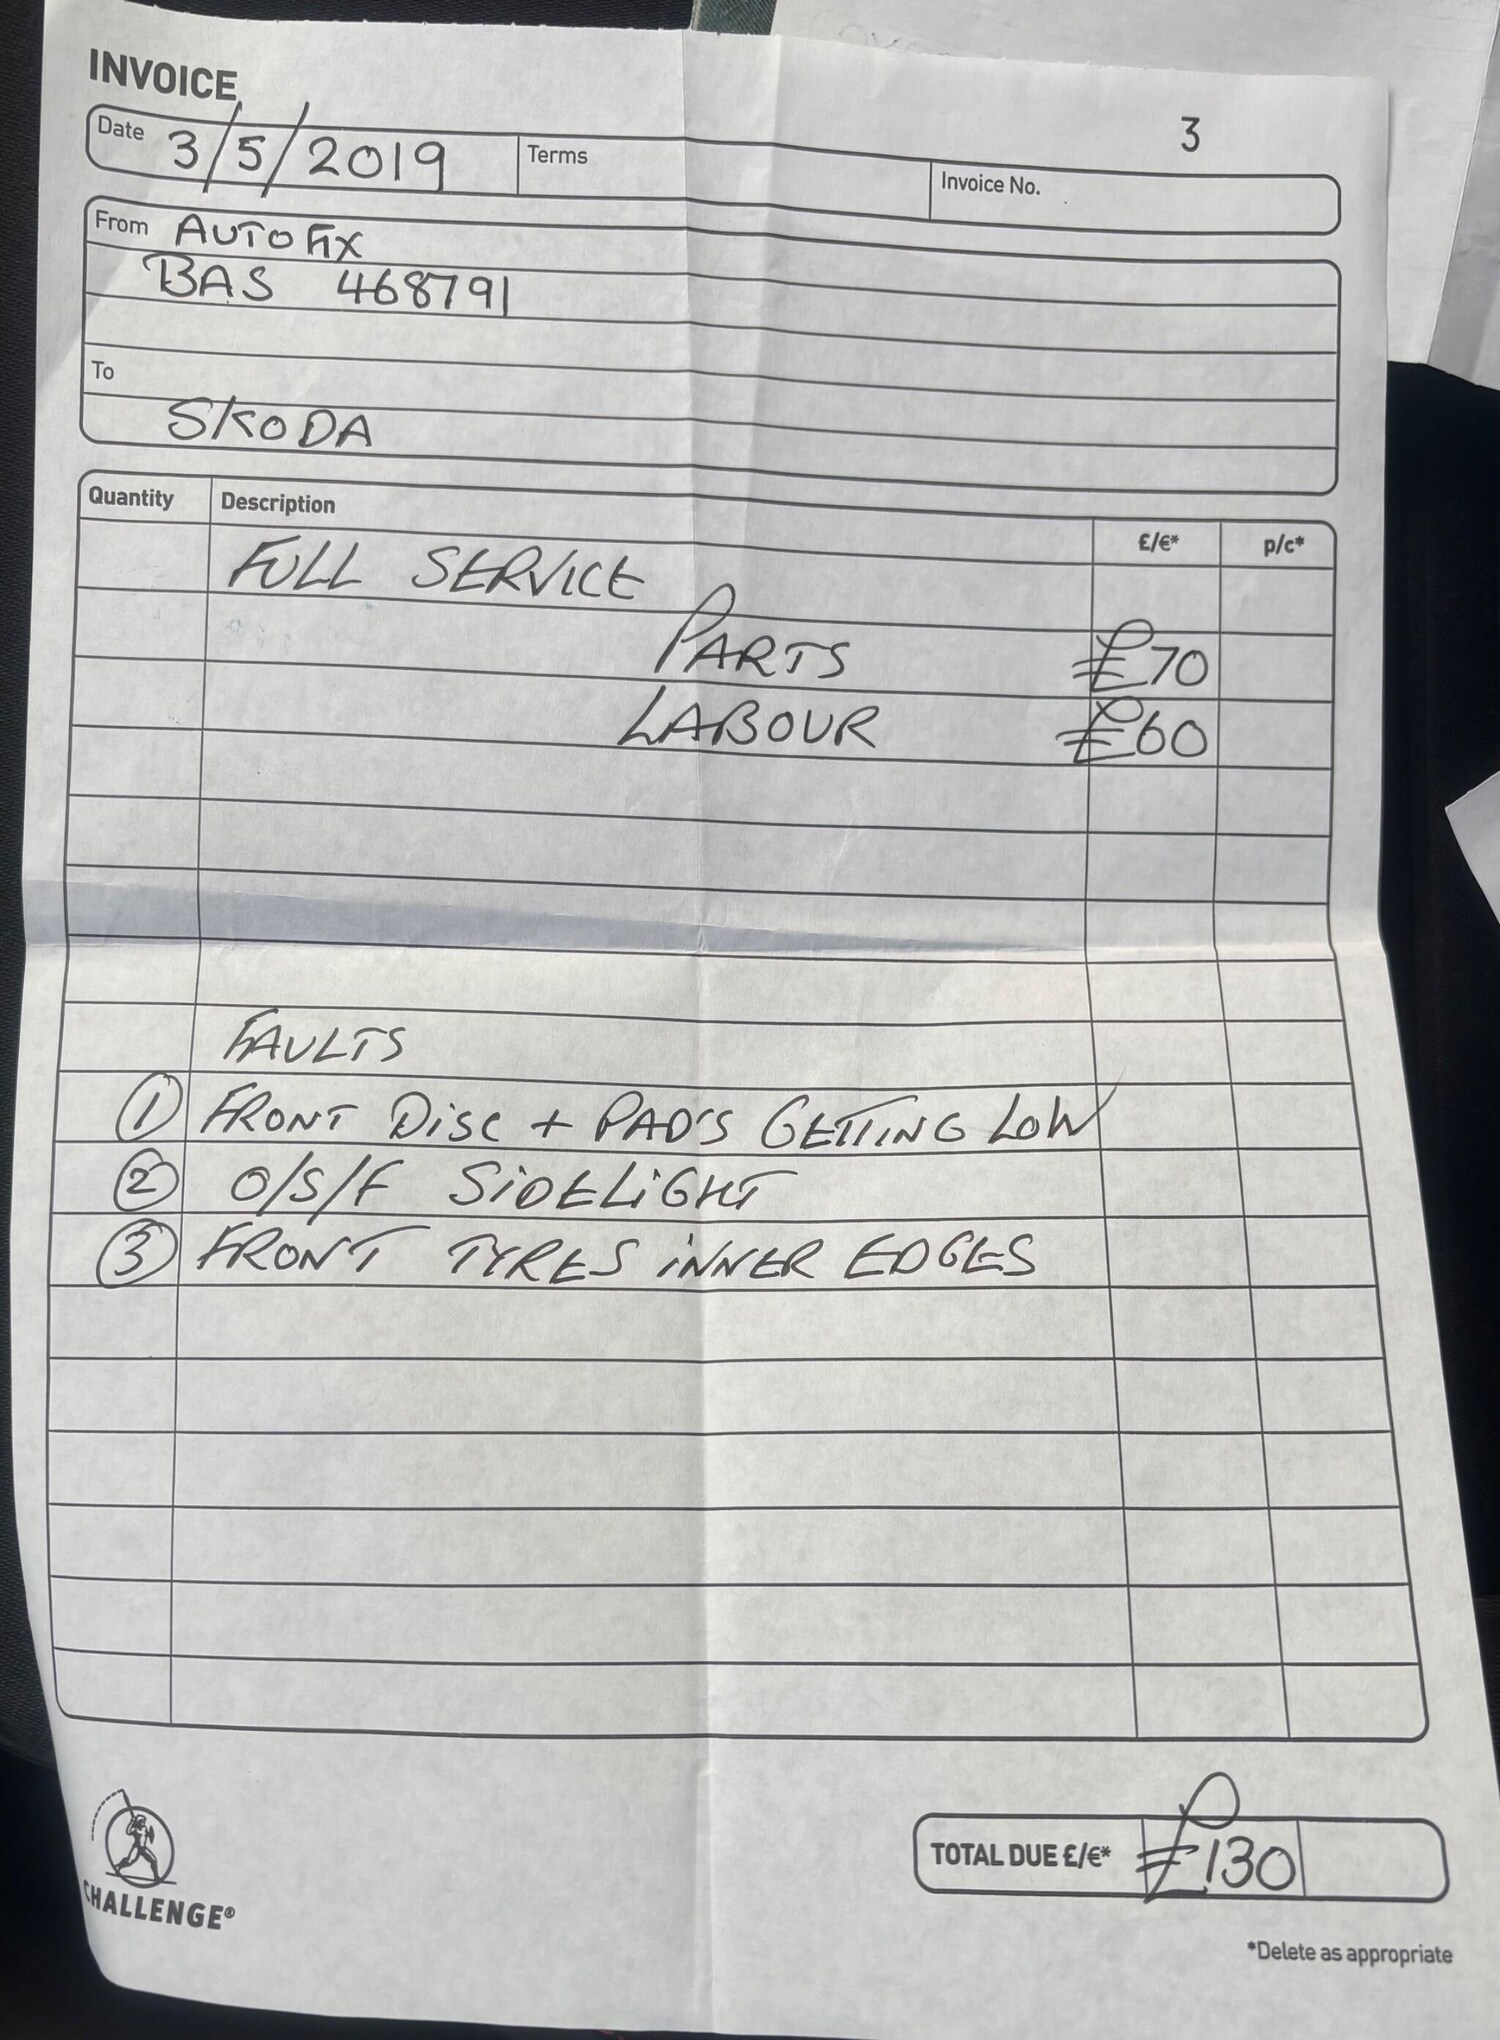 INVOICE
3
Date 3/5/2019 Terms Invoice No.
From AUTOFIX
BAS 468791
To
SKODA
Quantity Description £/€* p/c*
FULL SERVICE
PARTS £70
LABOUR £60
FAULTS
① FRONT DISC + PAD'S GETTING LOW
② O/S/F SIDELIGHT
③ FRONT TYRES INNER EDGES
TOTAL DUE £/€* £130
CHALLENGE®
*Delete as appropriate